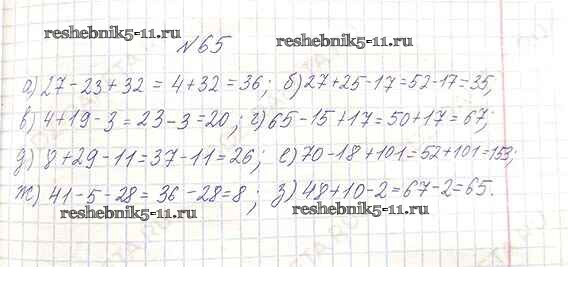 reshebnik5-11.ru
№65
reshebnik5-11.ru
а) 27-23+32 = 4+32 = 36; б) 27+25-17=52-17=35;
в) 4+19-3=23-3=20; г) 65-15+17=50+17=67;
д) 8+29-11=37-11=26; е) 70-18+101=52+101=153;
ж) 41-5-28= 36-28=8; з) 48+10-2=67-2=65.
reshebnik5-11.ru
reshebnik5-11.ru